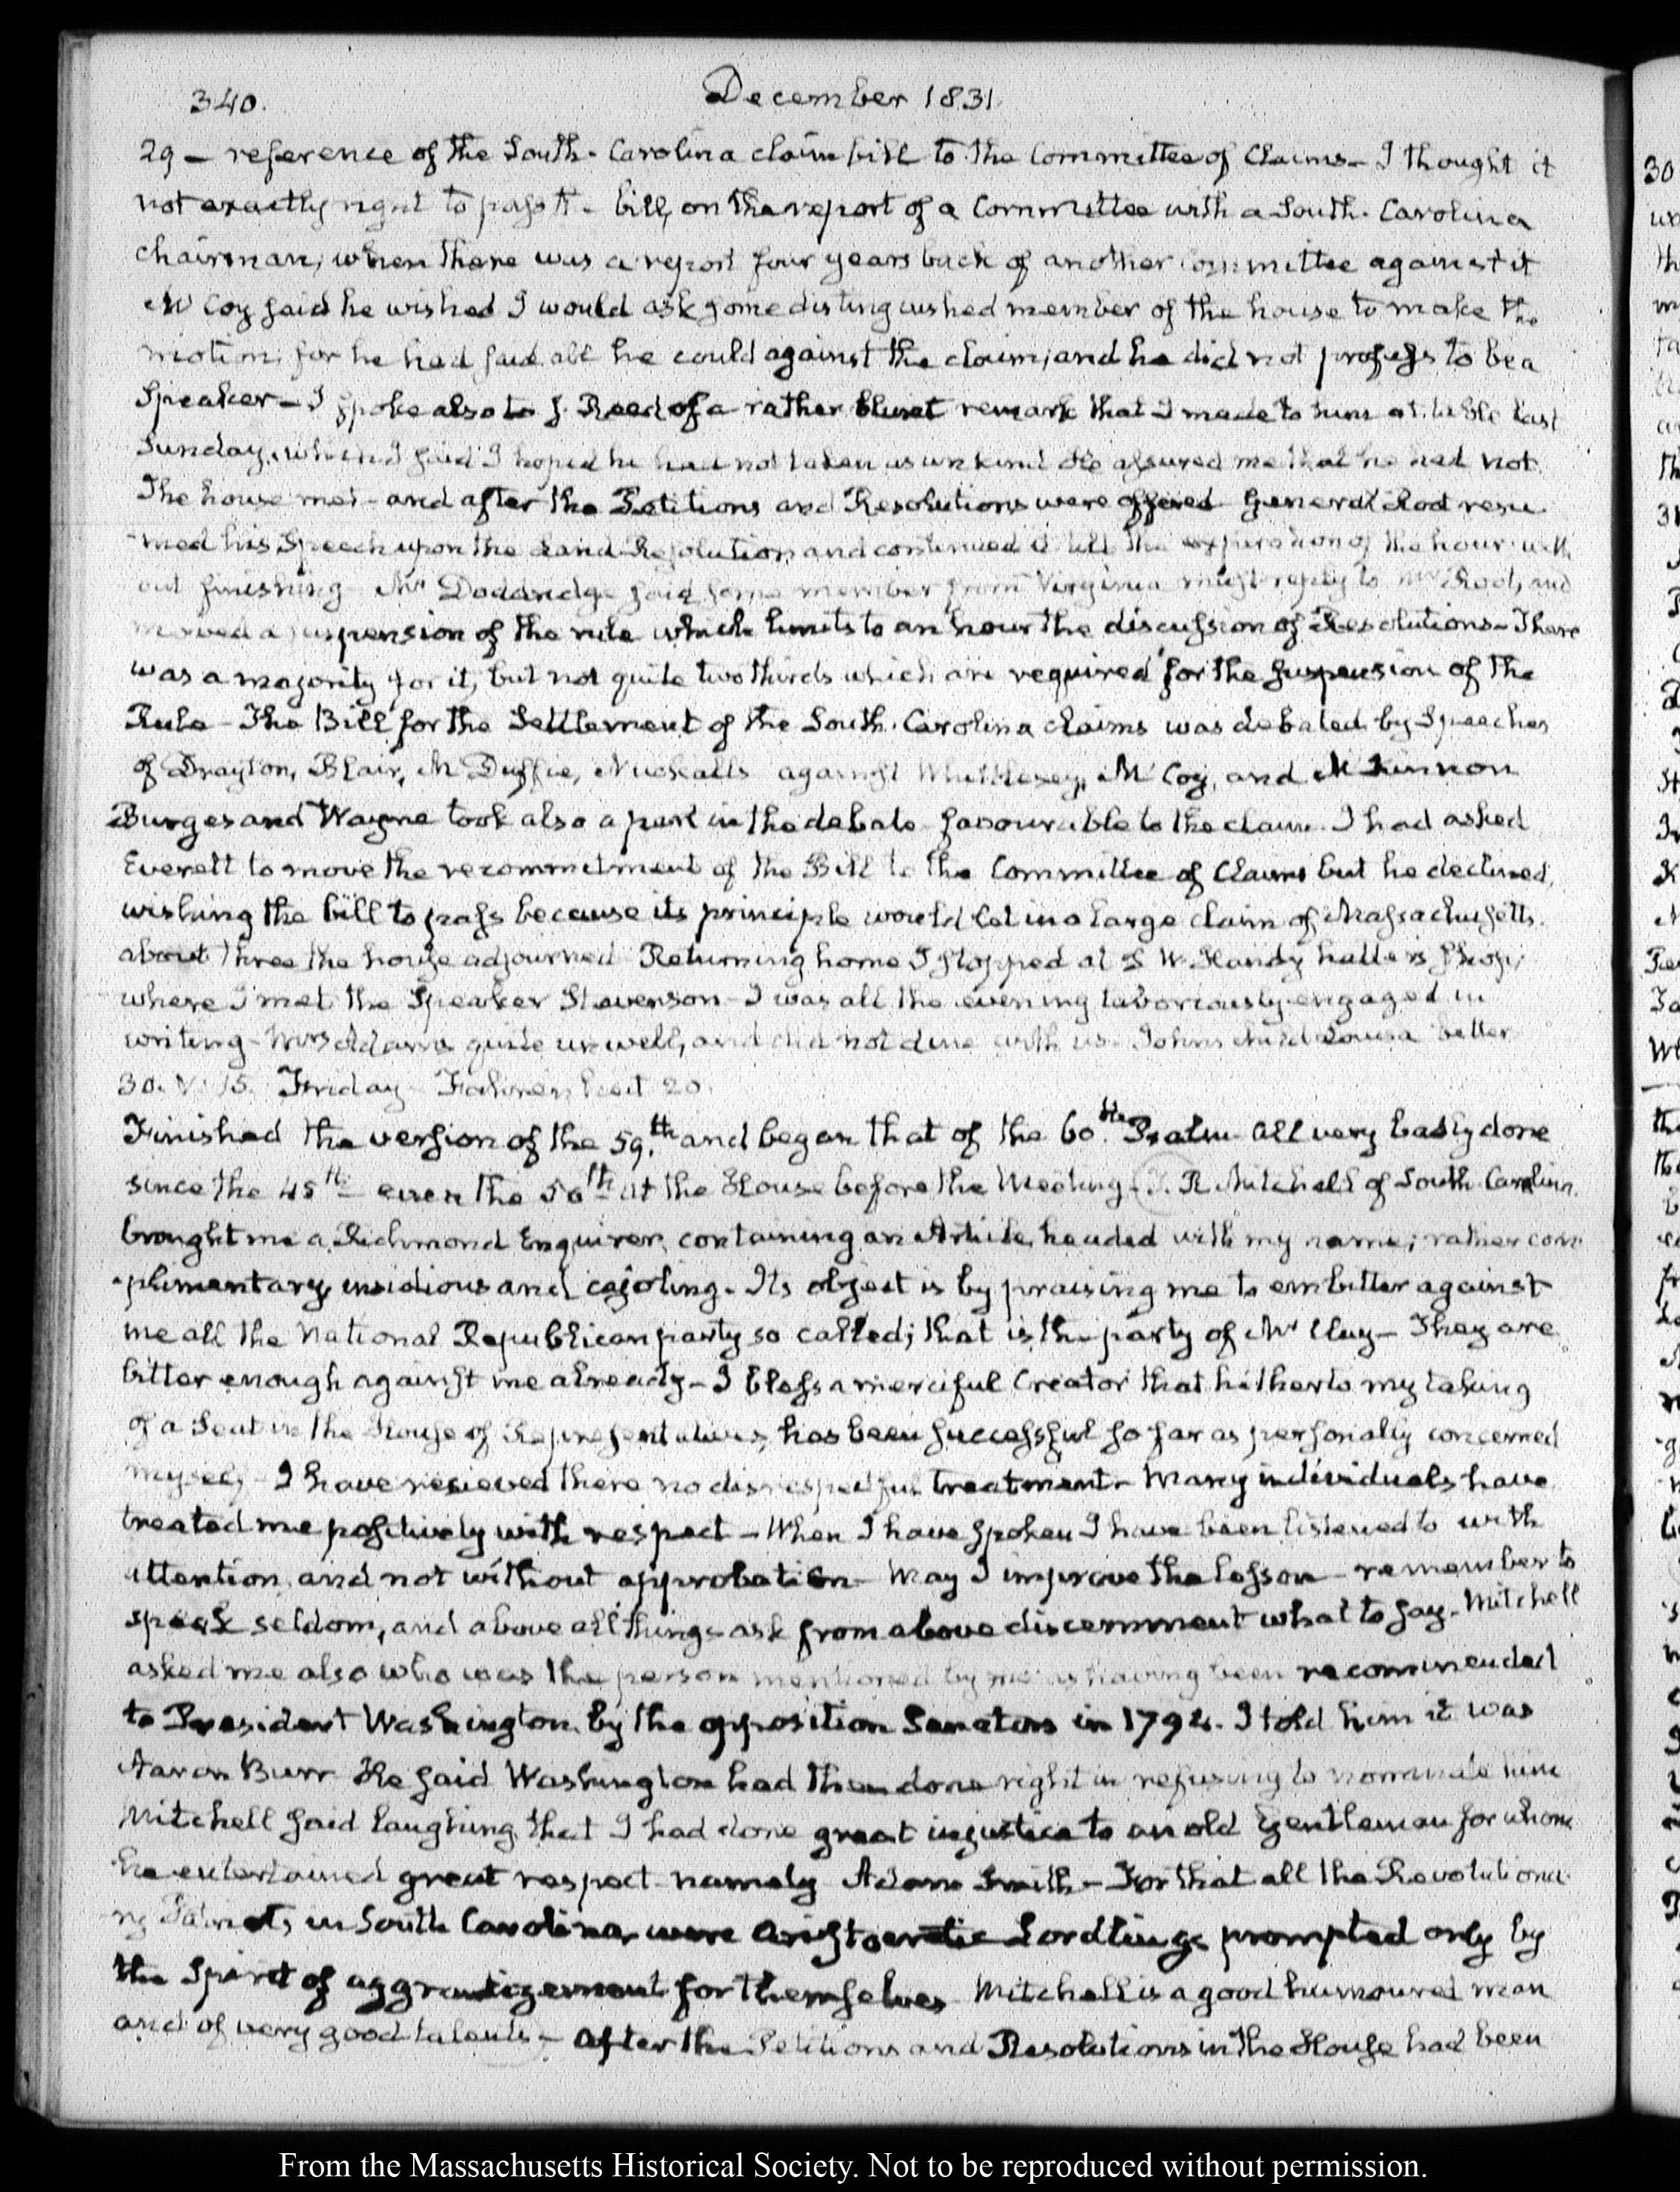 340. December 1831.
29 — reference of the South-Carolina claim bill to the Committee of Claims — I thought it
not exactly right to pass the bill, on the report of a Committee with a South-Carolina
chairman, when there was a report four years back of another Committee against it
McCoy said he wished I would ask some distinguished member of the house to make the
motion; for he had said all he could against the claim, and he did not profess to be a
Speaker — I spoke also to J. Reed of a rather blunt remark that I made to him at table last
Sunday, which I said I hoped he had not taken as unkind. He assured me that he had not.
The house met — and after the Petitions and Resolutions were offered General Root resu-
-med his Speech upon the Land Resolution, and continued it till the expiration of the hour with
out finishing Mr Doddridge said some member from Virginia must reply to Mr Root, and
moved a suspension of the rule which limits to an hour the discussion of Resolutions — There
was a majority for it, but not quite two thirds which are required for the suspension of the
Rule — The Bill for the Settlement of the South-Carolina claims was debated by Speeches
of Drayton, Blair, McDuffie, Nuckolls against Whittlesey, McCoy, and
Burges and Wayne took also a part in the debate favourable to the claim. I had asked
Everett to move the recommitment of the Bill to the Committee of Claims but he declined,
wishing the bill to pass because its principle would let in a large claim of Massachusetts.
about three the house adjourned Returning home I stopped at S W. Handy hatter's shop,
where I met the Speaker Stevenson — I was all the evening laboriously engaged in
writing — Mrs Adams quite unwell, and did not dine with us. John's child Louisa better
30. V: 15. Friday — Fahrenheit 20.
Finished the version of the 59.th and began that of the 60.th Psalm — all very badly done
since the 45th — even the 50th At the House before the Meeting — T. R. Mitchell of South Carolina.
brought me a Richmond Enquirer, containing an Article, headed with my name; rather com-
-plimentary, insidious and cajoling. Its object is by praising me to embitter against
me all the National Republican party so called; that is, the party of Mr Clay — They are
bitter enough against me already — I bless a merciful Creator that hitherto my taking
of a Seat in the House of Representatives, has been successful so far as personally concerned
myself — I have recieved there no disrespectful treatment — Many individuals have
treated me positively with respect — When I have spoken I have been listened to with
attention, and not without approbation — May I improve the lesson — remember to
speak seldom, and above all things ask from above discernment what to say — Mitchell
asked me also who was the person mentioned by me as having been recommended
to President Washington by the opposition Senators in 1794. I told him it was
Aaron Burr He said Washington had then done right in refusing to nominate him
Mitchell said laughing, that I had done great injustice to an old Gentleman for whom
he entertained great respect namely Adam Smith — For that all the Revolutiona-
ry Patriots, in South Carolina, were aristocratic Lordlings prompted only by
the Spirit of aggrandizement for themselves Mitchell is a good humoured man
and of very good talents — After the Petitions and Resolutions in the House had been
From the Massachusetts Historical Society. Not to be reproduced without permission.